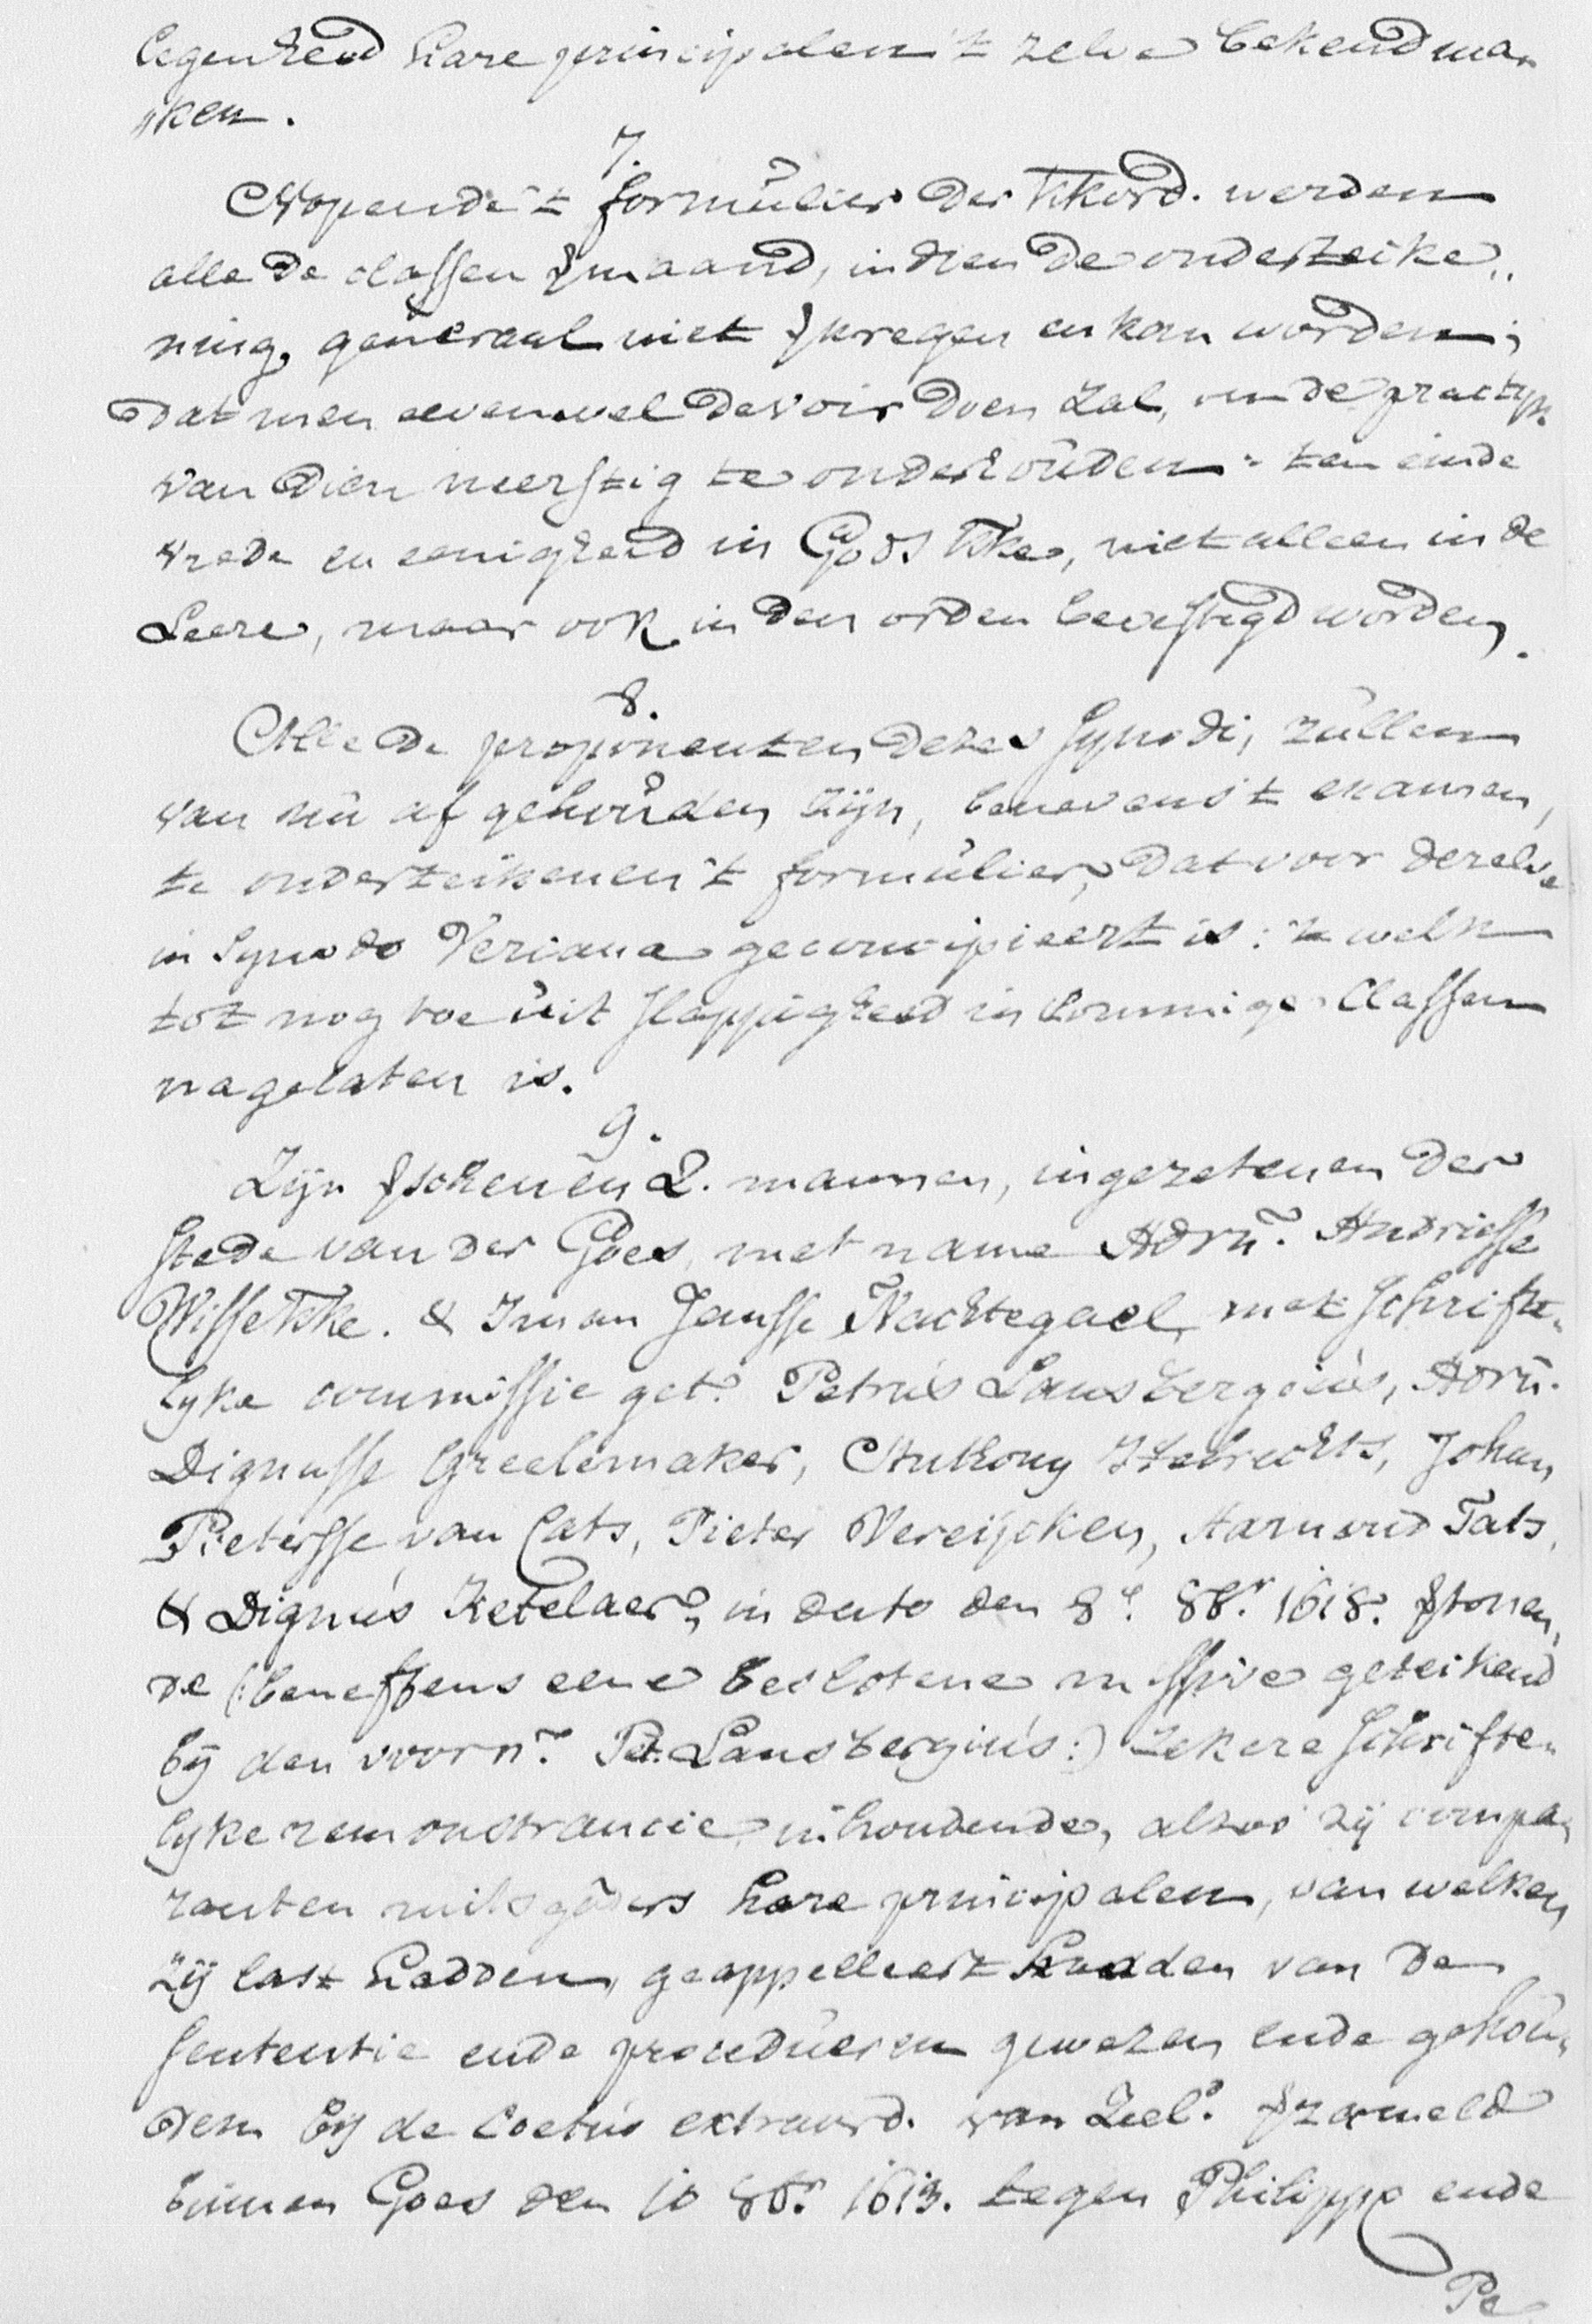 legenheid hare principalen 't zelve bekend ma„
„ken.
7.
Nopende 't formulier der Kkord. werden
alle de classen Vmaand, indien de onderteike„
ning, generaal niet Vkregen en kan worden;
dat men evenwel devoir doen zal, om de practyk
van dien neerstig te onderhouden: ten einde
vrede en enigheid in Gods Kke, niet alleen in de
Leere, maar ook in den orden bevestigd worden.
8.
Alle de proponenten dezes Synodi, zullen
van nu af gehouden zijn, benevens 't examen,
te onderteikenen 't formulier, dat voor dezelve
in Synodo Veriana geconcipieert is: 't welk
tot nog toe uit slappigheid in sommige Classen
nagelaten is.
9.
Zijn Vschenen 2. mannen, ingezetenen der
stede van der Goes, met name Adrn. Andriesse
Wissekke. & Iman Jansse Nachtegael, met schrifte„
lyke commissie get. Petrus Lansbergius, Adrn.
Dignusse Greelemaker, Anthony IJsebrechts, Johan
Pietersse van Cats, Pieter Vereijcken, Aarnoud Tats,
& Dignus Ketelaer, in dato den 8e. 8br. 1618. Vtonen„
de (:beneffens eene beslotene missive geteikend
bij den voorn. Pet. Lansbergius:) zekere schrifte„
lyke remonstrancie, inhoudende, alzoo zij compa„
ranten mitsgders hare principalen, van welken
zij last hadden, geappelleert hadden van de
sententie ende procedueren gewezen ende gehou„
den bij de Coetus extraord. van Zeel. Vzameld
binnen Goes den 10 8br. 1613. tegen Philippo ende
Pe